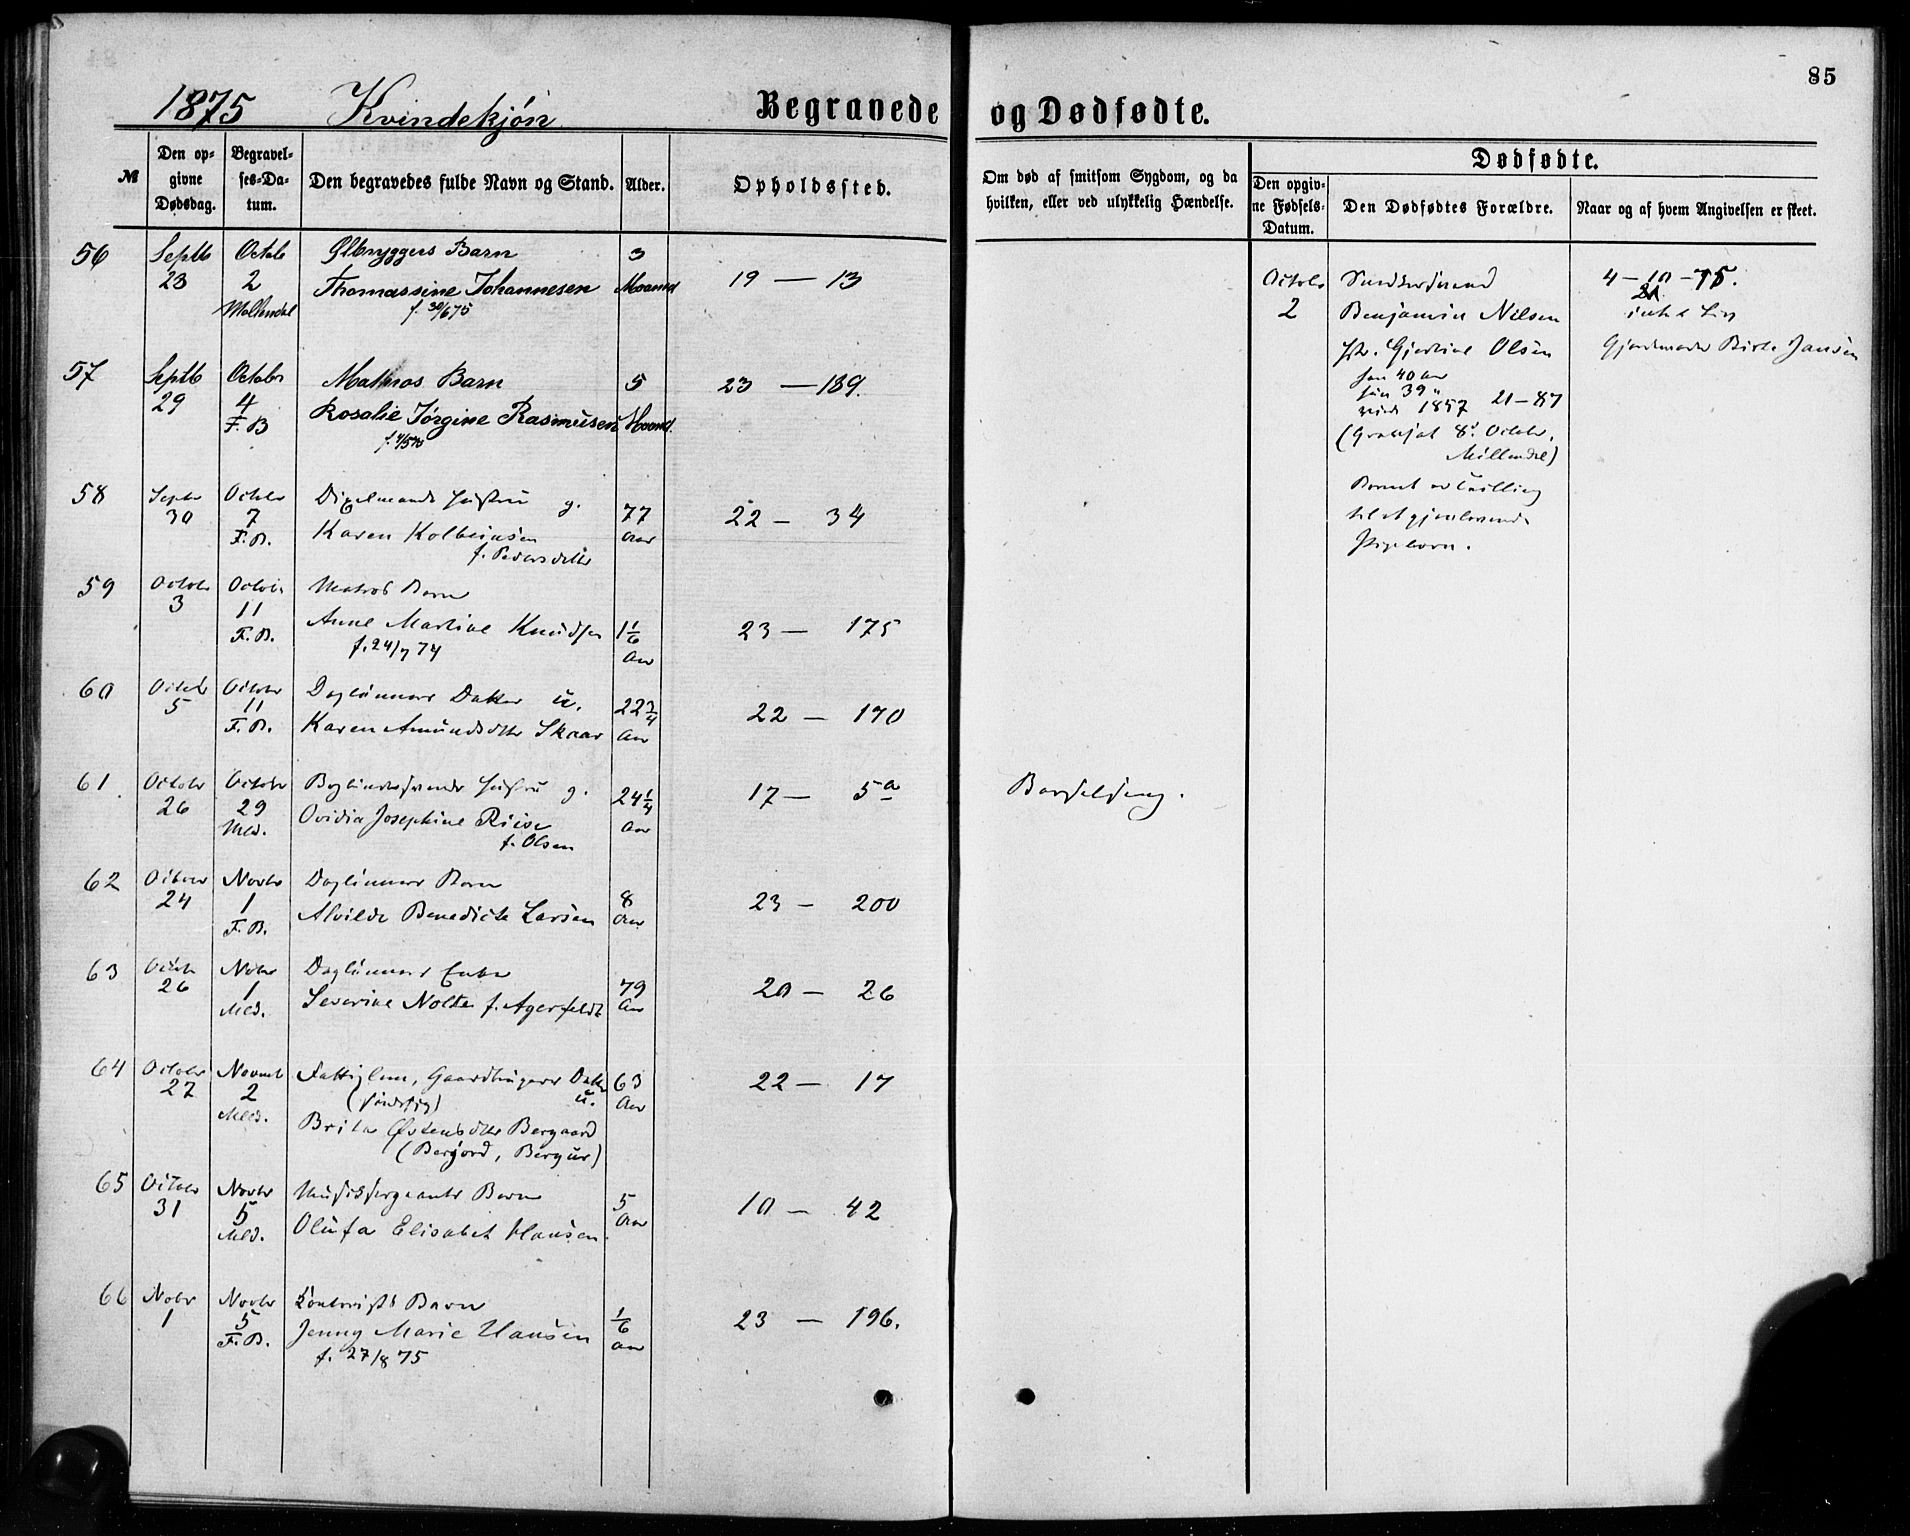 85
1875 Kvindekjøn Begravede og Dødfødte.
№
Den opgivne Dødsdag.
Begravelses-Datum.
Den begravedes fulde Navn og Stand.
Alder.
Opholdssted.
Om død af smitsom Sygdom, og da hvilken, eller ved ulykkelig Hændelse.
Dødfødte.
Den opgivne Fødsels-Datum.
Den Dødfødtes Forældre.
Naar og af hvem Angivelsen er skeet.
56 Septb Octob Ølbryggers Barn 3
23 2 Thomassine Johannesen Maaned 19 — 13
Møllendal f. 30/6 75
57 Septb Octobr Matros Barn 5 23 — 189.
29 4 Rosalie Jørgine Rasmusen Maaned.
F. B
58 Septbr Octobr Hustru g. 77 22 — 34
30 7 Karen Kolbeinsen Aar
F. B. f. Pedersdatter
59 Octobr Octobr Matros Barn
3 11 Anne Martine Knudsen 1 1/6 23 — 175
F. B. f. 24/7 74 Aar
60 Octobr Octobr Daglønners Datter u. 22 3/4 22 — 170
5 11 Karen Amundsdtr Skaar Aar
F. B.
61. Octobr Octobr Hustru g. 24 1/4 17 — 5a
26 29 Ovidia Josephine Riise Aar
Mld. f. Olsen
Barselseng.
62 Octobr Novbr Daglønners Barn 8 23 — 200
24 1 Alvilde Benedicte Larsen Aar
F. B.
63 Octobr Novbr Daglønners Enke 79 20 — 26
26 1 Severine Nolte f. Agerfeldt Aar
Mld.
64 Octobr Novemb Fattiglem, Gaardbrugers Datter 63 22 — 17
27 2 (sindssyg) u. Aar
Mld. Brita Østensdtr Bergaard
(Bergord, Bergur)
65 Octobr Novbr Musiksergeants Barn 5 10 — 42
31 5 Olufa Elisabet Hansen Aar
Mld.
66 Nobr Novbr Barn 1/6 23 — 196.
1 5 Jenny Marie Hansen Aar
F. B. f. 27/8 75
Octobr
2 Benjamin Nilsen
Gjertine Olsen
han 40 Aar
hun 39 "
viede 1857 21 — 87
(Gravsat 8de Octobr.
Møllendal)
Barnet er Tvilling
til et gjenlevende
Pigebarn.
4 — 10 — 75.
Gjordemoder Birte Jansen